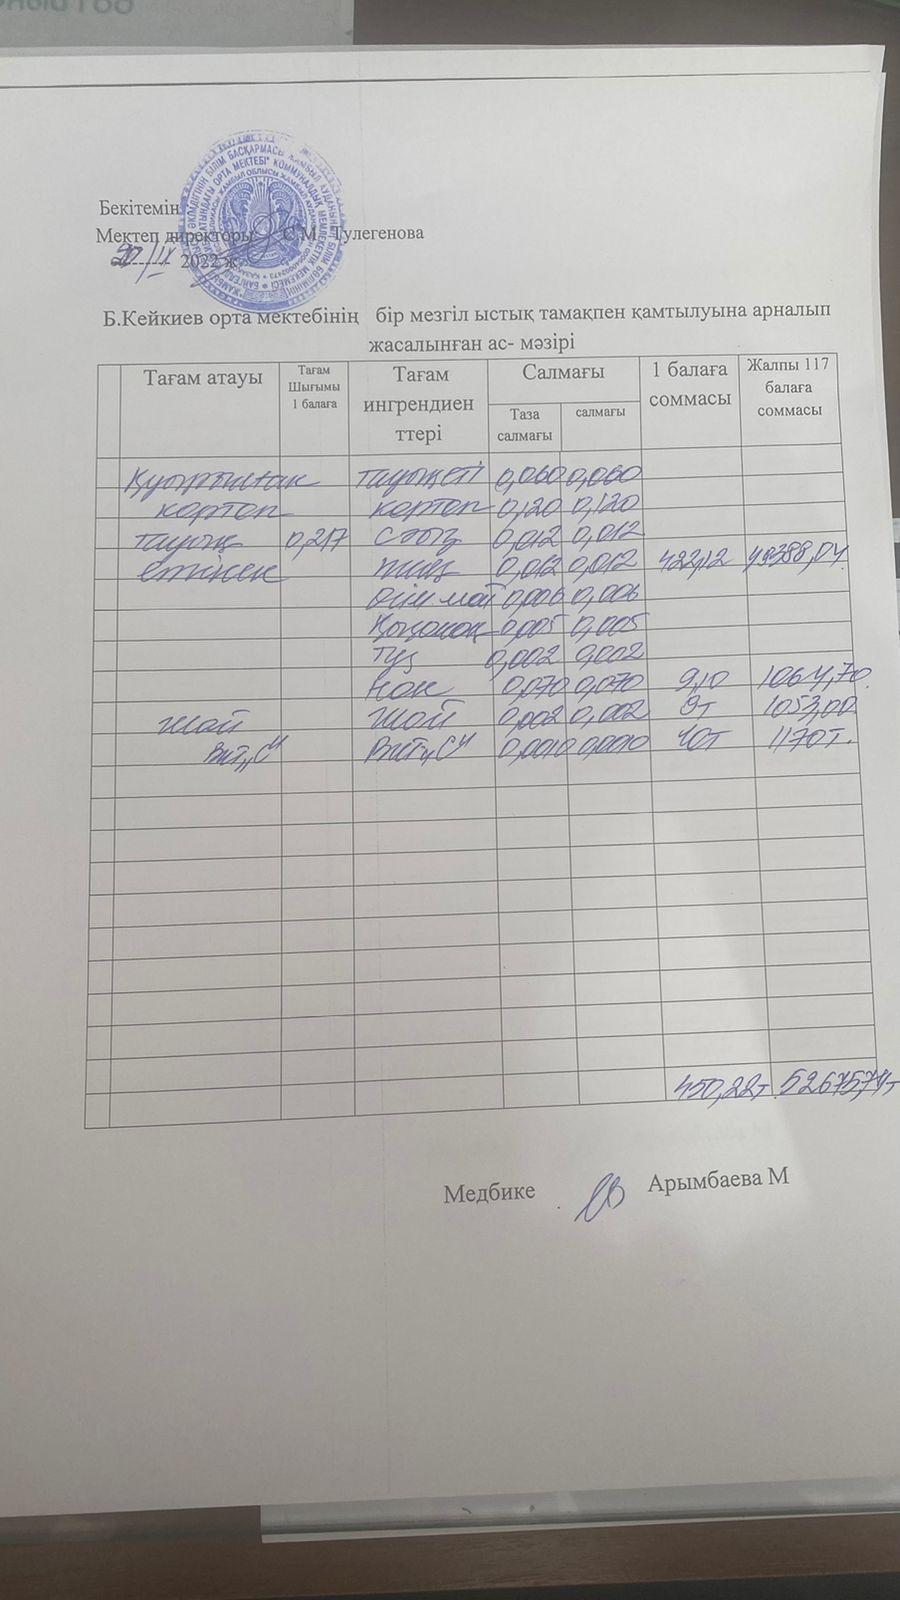 Бекітемін
Мектеп директоры С.М. Тулегенова
20/IX 2022 ж.
Б.Кейкиев орта мектебінің бір мезгіл ыстық тамақпен қамтылуына арналып
жасалынған ас- мәзірі
Тағам атауы Тағам Шығымы 1 балаға Тағам ингрендиен ттері Салмағы 1 балаға соммасы Жалпы 117 балаға соммасы
Таза салмағы салмағы
Қуырылған тауықеті 0,060 0,060
картоп картоп 0,120 0,120
тауық 0,217 сәбіз 0,012 0,012
етінен пияз 0,012 0,012 422,12 49388,04
өсім.май 0,006 0,006
0,005 0,005
тұз 0,002 0,002
нан 0,070 0,070 9,10 1064,70
Шай Шай 0,002 0,002 9т 1053,00
Вит„С" Вит„С" 0,0010 0,0010 10т 1170т.
450,22т
Медбике Арымбаева М